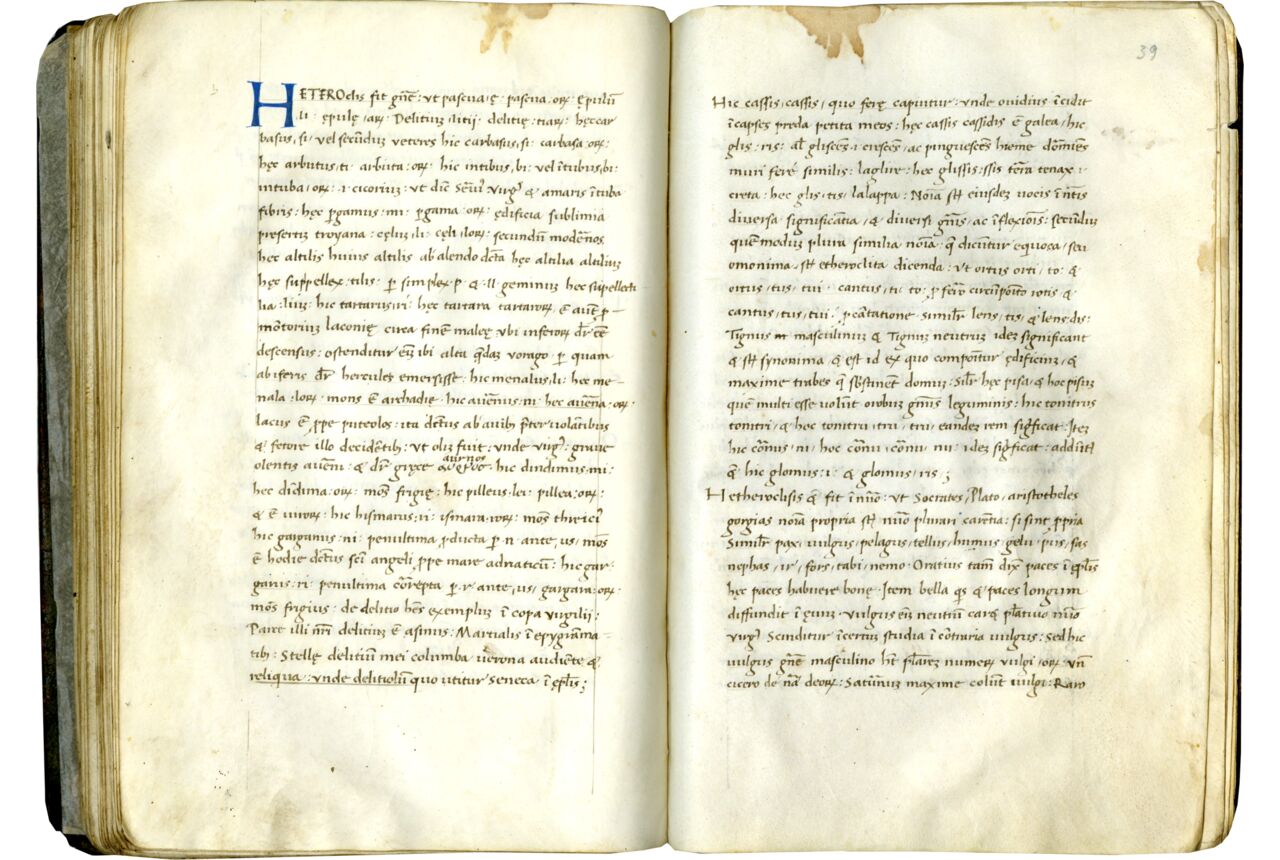 HETEROclis fit gñe: ut pascua, ę pascua, oꝝ. Epulũ
li epulę, aꝝ. Delitiuꝫ litij delitię, tiaꝝ. hęc car
basus, si, vel secũduꝫ veteres hic carbasus, si: carbasa, oꝝ.
hęc arbutus, ti arbuta, oꝝ. hic intibus, bi, vel ĩtubus, bi:
intuba, oꝝ. i. cicoriuꝫ: ut dic̃ Virg̃ & amaris ĩtuba
fibris: hęc ꝑgamus, mi ꝑgama, oꝝ. ędificia sublimia
presertiꝫ troyana: cęluꝫ, li: cęli, loꝝ. secundũ modẽnos
hec altilis huius altilis ab alendo dc̃ta hęc altilia altiliuꝫ
hęc suppellex, tilis ꝑ simplex p & ll geminuꝫ hec supellecti
lia, liuꝫ: hic tartarus, ri: hęc tartara tartaroꝝ, ẽ autẽ ꝓ
mõtoriuꝫ laconię circa finẽ malee ubi inferoꝝ dr̃ eẽ
descensus: ostenditur eĩꝫ ibi alta q̃daꝫ vorago ꝑ quam
ab iferis dr̃ hercules emersisse: hic menalus, li: hec me
nala, loꝝ. mons ẽ archadię hic avẽnus, ni hec avẽna, oꝝ.
lacus ẽ ꝓpe puteolos: ita dc̃tus ab avib p̃ter volãtibus
& fetore illo decidẽtib: ut oliꝫ fuit: unde virg̃: grave
olentis avẽni: & dr̃ gręce αορνος. hic dindimus, mi:
aornos
hec dĩdima, oꝝ. mõs frigię: hic pilleus, lei: pillea, oꝝ.
hic hismarus, ri: ismara, roꝝ. mõs threicĩ
hic garganus, ni: penultima ꝓducta ꝑ n ante, us, mõs
ẽ hodie dc̃tus sc̃i angeli ꝓpe mare adriaticũ: hic gar
garus, ri: penultima cõrrepta ꝑ r ante, us, gargara, oꝝ.
mõs frigius: de delitio hẽs exempluꝫ ĩ copa virgilii:
Parce illi nr̃i delitiuꝫ ẽ asinus: Martialis ĩ epygrãma
tib: Stellę delitiũ mei columba verona audiẽte &
reliqua: unde delitiolũ quo utitur Seneca ĩ ep̃lis;
39
Hic cassis, cassis, quo ferę capiuntur: unde ovidius ĩcidit
ĩ casses preda petita meos: hęc cassis cassidis ẽ galea, hic
glis, ris: al̃ gliscẽs i. crescẽs, ac pinguescẽs hieme dõmiẽs
muri ferẽ similis: la glire: hec glissis, ssis tẽra tenax i.
creta: hec glis, tis, la lappa: Noĩa sꝫ eiusdeꝫ vocis ĩ ñtis
diversa significãtia, & diversi gñis, ac ĩflexiõis: secũduꝫ
queꝫmoduꝫ plura similia noĩa: q̃ dicũtur equivoca, seu
omonima, sꝫ etheroclita dicenda: ut ortus orti, to: &
ortus, tus, tui: cantus, ti, to: ꝓ ferro circũposito rotis &
cantus, tus, tui: ꝓ cãtatione. similr̃ lens, tis, & lens, dis:
Tignus masculinuꝫ & Tignuꝫ neutruꝫ ideꝫ significant
& sꝫ synonima, & est id ex quo componĩtur ędificiuꝫ, &
maxime trabes q̃ sustinent domuꝫ: Silr̃ hęc pisa, & hoc pisuꝫ
quẽ multi esse volũt orobuꝫ gẽnus leguminis: hic tonitrus
tonitri, & hec tonitru, tru, tru, eandeꝫ rem sigficat: Iteꝫ
hic cõnus, ni, hoc cõnu, cõnu, nu, ideꝫ sigficat: addĩtꝫ
q̃ hic glomus: i. & glomus, ris;
Hetheroclisis q̃ fit ĩ nũo: ut Socrates, Plato, aristotheles
gorgias noĩa propria sꝫ nũo plurari carẽtia: si sint ꝓpria
Similr̃ pax, vulgus, pelagus, tellus, humus, gelu, pus, fas
nephas, ir, fors, tabi, nemo. Oratius tam̃ dix̃ paces ĩ ep̃lis
hęc paces habuere bonę. Item bella q̃s & paces longum
diffundit ĩ ęvuꝫ. Vulgus eĩꝫ neutrũ carẽ pl̃ativo nũo
virg̃ Scinditur ĩcertuꝫ studia ĩ cõtraria vulgus: Sed hic
vulgus gñe masculino hẽt pl̃areꝫ numeꝝ vulgi, oꝝ. un̄
cicero de nã deoꝝ: Satũnuꝫ maxime colũt vulgi: Raro